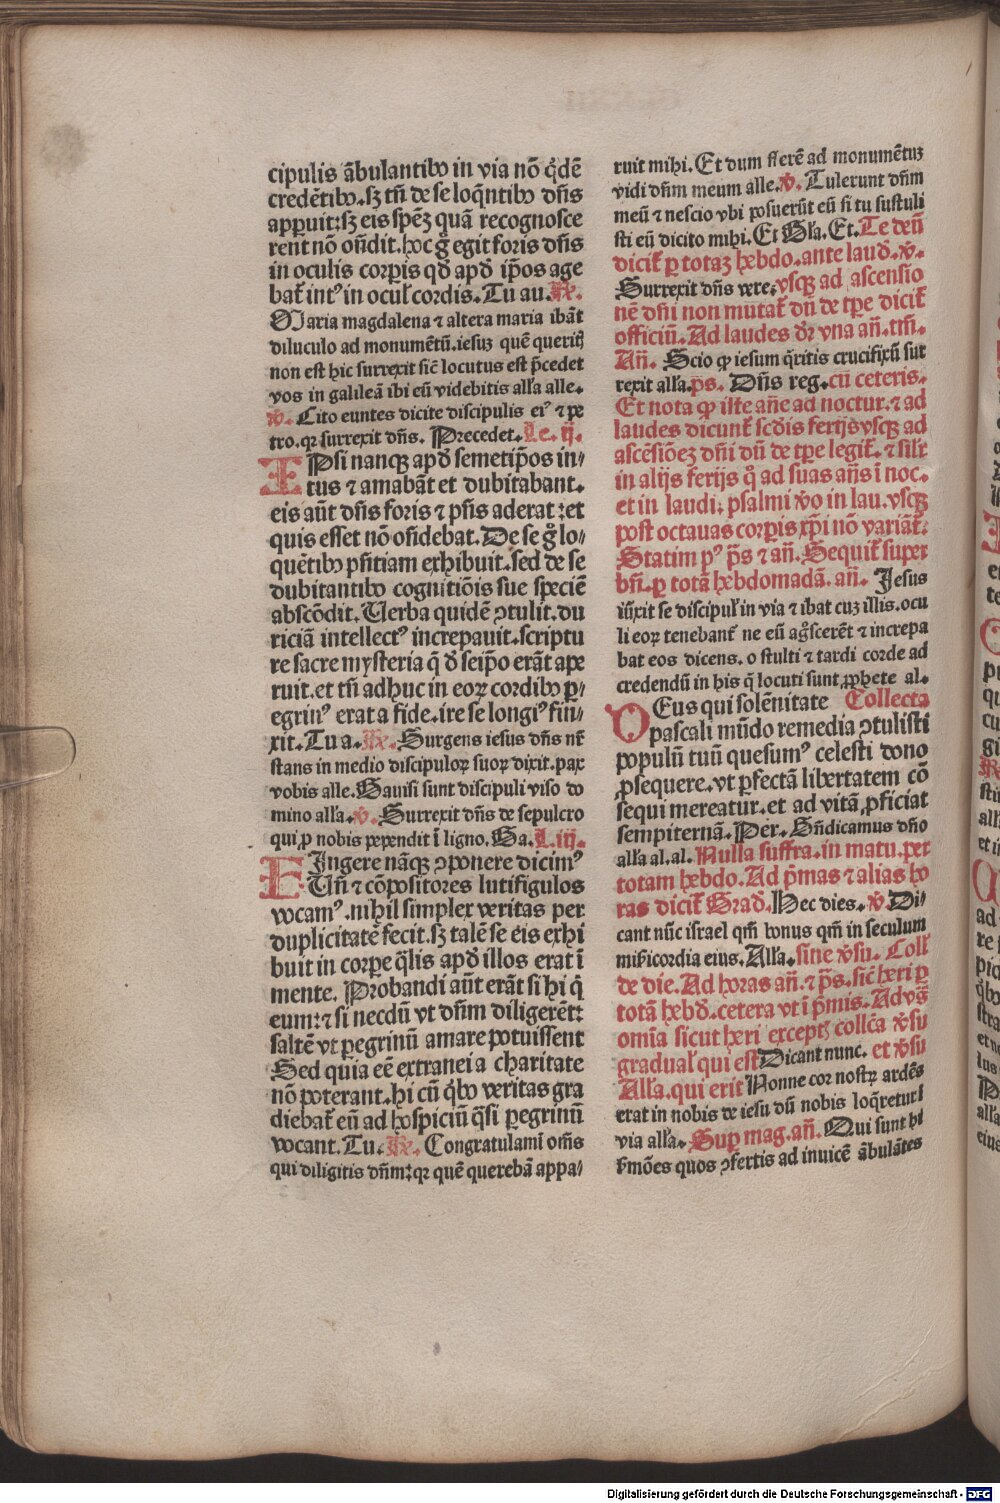 cipulis ãbulantibꝰ in via nõ q̇dẽ
credẽtibꝰ. sꝫ tñ de se loq̃ntibꝰ dñs
apparuit: sꝫ eis spẽꝫ quã recognosce
rent nõ oñdit. hoc g̊ egit foris dñs
in oculis corꝑis qđ apđ ip̃os age
bat᷑ intꝰ in ocul᷑ cordis. Tu au. ℟.
Maria magdalena ⁊ altera maria ibãt
diluculo ad monumẽtũ. iesuꝫ quẽ queritꝭ
non est hic surrexit sic̃ locutus est p̃cedet
vos in galileã ibi eũ videbitis all᷑a alle.
℣. Cito euntes dicite discipulis eiꝰ ⁊ pe
tro. qꝛ surrexit dñs. Precedet. Le. ij.
IPsi nanqꝫ apđ semetip̃os in⸗
tus ⁊ amabãt et dubitabant.
eis aũt dñs foris ⁊ p̃ñs aderat: et
quis esset nõ oñdebat. De se g̊ lo⸗
quẽtibꝰ p̃ñtiam exhibuit. sed de se
dubitantibꝰ cognitiõis sue speciẽ
abscõdit. Uerba quidẽ ꝯtulit. du
riciã intellectꝰ increpauit. scriptu
re sacre mysteria q̃ đ seip̃o erãt ape
ruit. et tñ adhuc in eoꝝ cordibꝰ ꝑ⸗
egrinꝰ erat a fide. ire se longiꝰ fin⸗
xit. Tu a. ℟. Surgens iesus dñs nr̃
stans in medio discipuloꝝ suoꝝ dixit. pax
vobis alle. Gauisi sunt discipuli viso do
mino all᷑a. ℣. Surrexit dñs de sepulcro
qui ꝓ nobis pependit ĩ ligno. Ga. L. iij.
FIngere nãqꝫ ꝯponere dicimꝰ
Uñ ⁊ cõpositores luti figulos
vocamꝰ. nihil simplex veritas per
duplicitatẽ fecit. sꝫ talẽ se eis exhi
buit in corꝑe q̃lis apđ illos erat ĩ
mente. Probandi aũt erãt si hi q̃
eum: ⁊ si necdũ vt dñm diligerẽt:
saltẽ vt ꝑegrinũ amare potuissent
Sed quia eẽ extranei a charitate
nõ poterant. hi cũ q̇bꝰ veritas gra
diebat᷑ eũ ad hospiciũ q̃si ꝑegrinũ
vocant. Tu. ℟. Congratulamĩ om̃s
qui diligitis dñm: qꝛ quẽ querebã appa⸗
ruit mihi. Et dum flerẽ ad monumẽtuꝫ
vidi dñm meum alle. ℣. Tulerunt dñm
meũ ⁊ nescio vbi posuerũt eũ si tu sustuli
sti eũ dicito mihi. Et Gl᷑a. Et. Te deũ
dicit᷑ ꝑ totaꝫ hebdo. ante lauđ. ℣.
Surrexit dñs vere. vsqꝫ ad ascensio
nẽ dñi non mutat᷑ dũ de tꝑe dicit᷑
officiũ. Ad laudes dr̃ vna añ. tm̃.
Añ. Scio ꝙ iesum q̃ritis crucifixũ sur
rexit all᷑a. p̃s. Dñs reg. cũ ceteris.
Et nota ꝙ iste añe ad noctur. ⁊ ad
laudes dicunt᷑ scđis ferijs vsqꝫ ad
ascẽsiõeꝫ dñi dũ de tꝑe legit᷑. ⁊ silr̃
in alijs ferijs q̊ ad suas añs ĩ noc.
et in laudi. psalmi ꝟo in lau. vsqꝫ
post octauas corꝑis xp̃i nõ variãt᷑.
Statim pꝰ p̃s ⁊ añ. Sequit᷑ super
bñ. ꝑ totã hebdomadã. añ. Jesus
iũxit se discipul᷑ in via ⁊ ibat cuꝫ illis. ocu
li eoꝝ tenebant᷑ ne eũ ag̊scerẽt ⁊ increpa
bat eos dicens. o stulti ⁊ tardi corde ad
credendũ in his q̃ locuti sunt ꝓphete al.
DEus qui solẽnitate Collecta
pascali mũdo remedia ꝯtulisti
populũ tuũ quesumꝰ celesti dono
ꝓsequere. vt ꝑfectã libertatem cõ
sequi mereatur. et ad vitã ꝓficiat
sempiternã. Per. Bñdicamus dño
all᷑a al. al. Nulla suffra. in matu. per
totam hebdo. Ad p̃mas ⁊ alias ho
ras dicit᷑ Građ. Hec dies. ℣. Di⸗
cant nũc israel qm̃ bonus qm̃ in seculum
mĩsericordia eius. All᷑a. sine ꝟsu. Coll᷑
de die. Ad horas añ. ⁊ p̃s. sic̃ heri ꝑ
totã hebđ. cetera vt ĩ p̃mis. Ad vs̃ꝑ
om̃ia sicut heri exceptꝭ collc̃a ꝟsu
gradual᷑ qui est Dicant nunc. et ꝟsu
All᷑a. qui erit Nonne cor nostꝝ ardẽs
erat in nobis de iesu dũ nobis loq̃retur ĩ
via all᷑a. Suꝑ mag. añ. Qui sunt hi
ẜmões quos ꝯfertis ad inuicẽ ãbulãtes
Digitalisierung gefördert durch die Deutsche Forschungsgemeinschaft - DFG